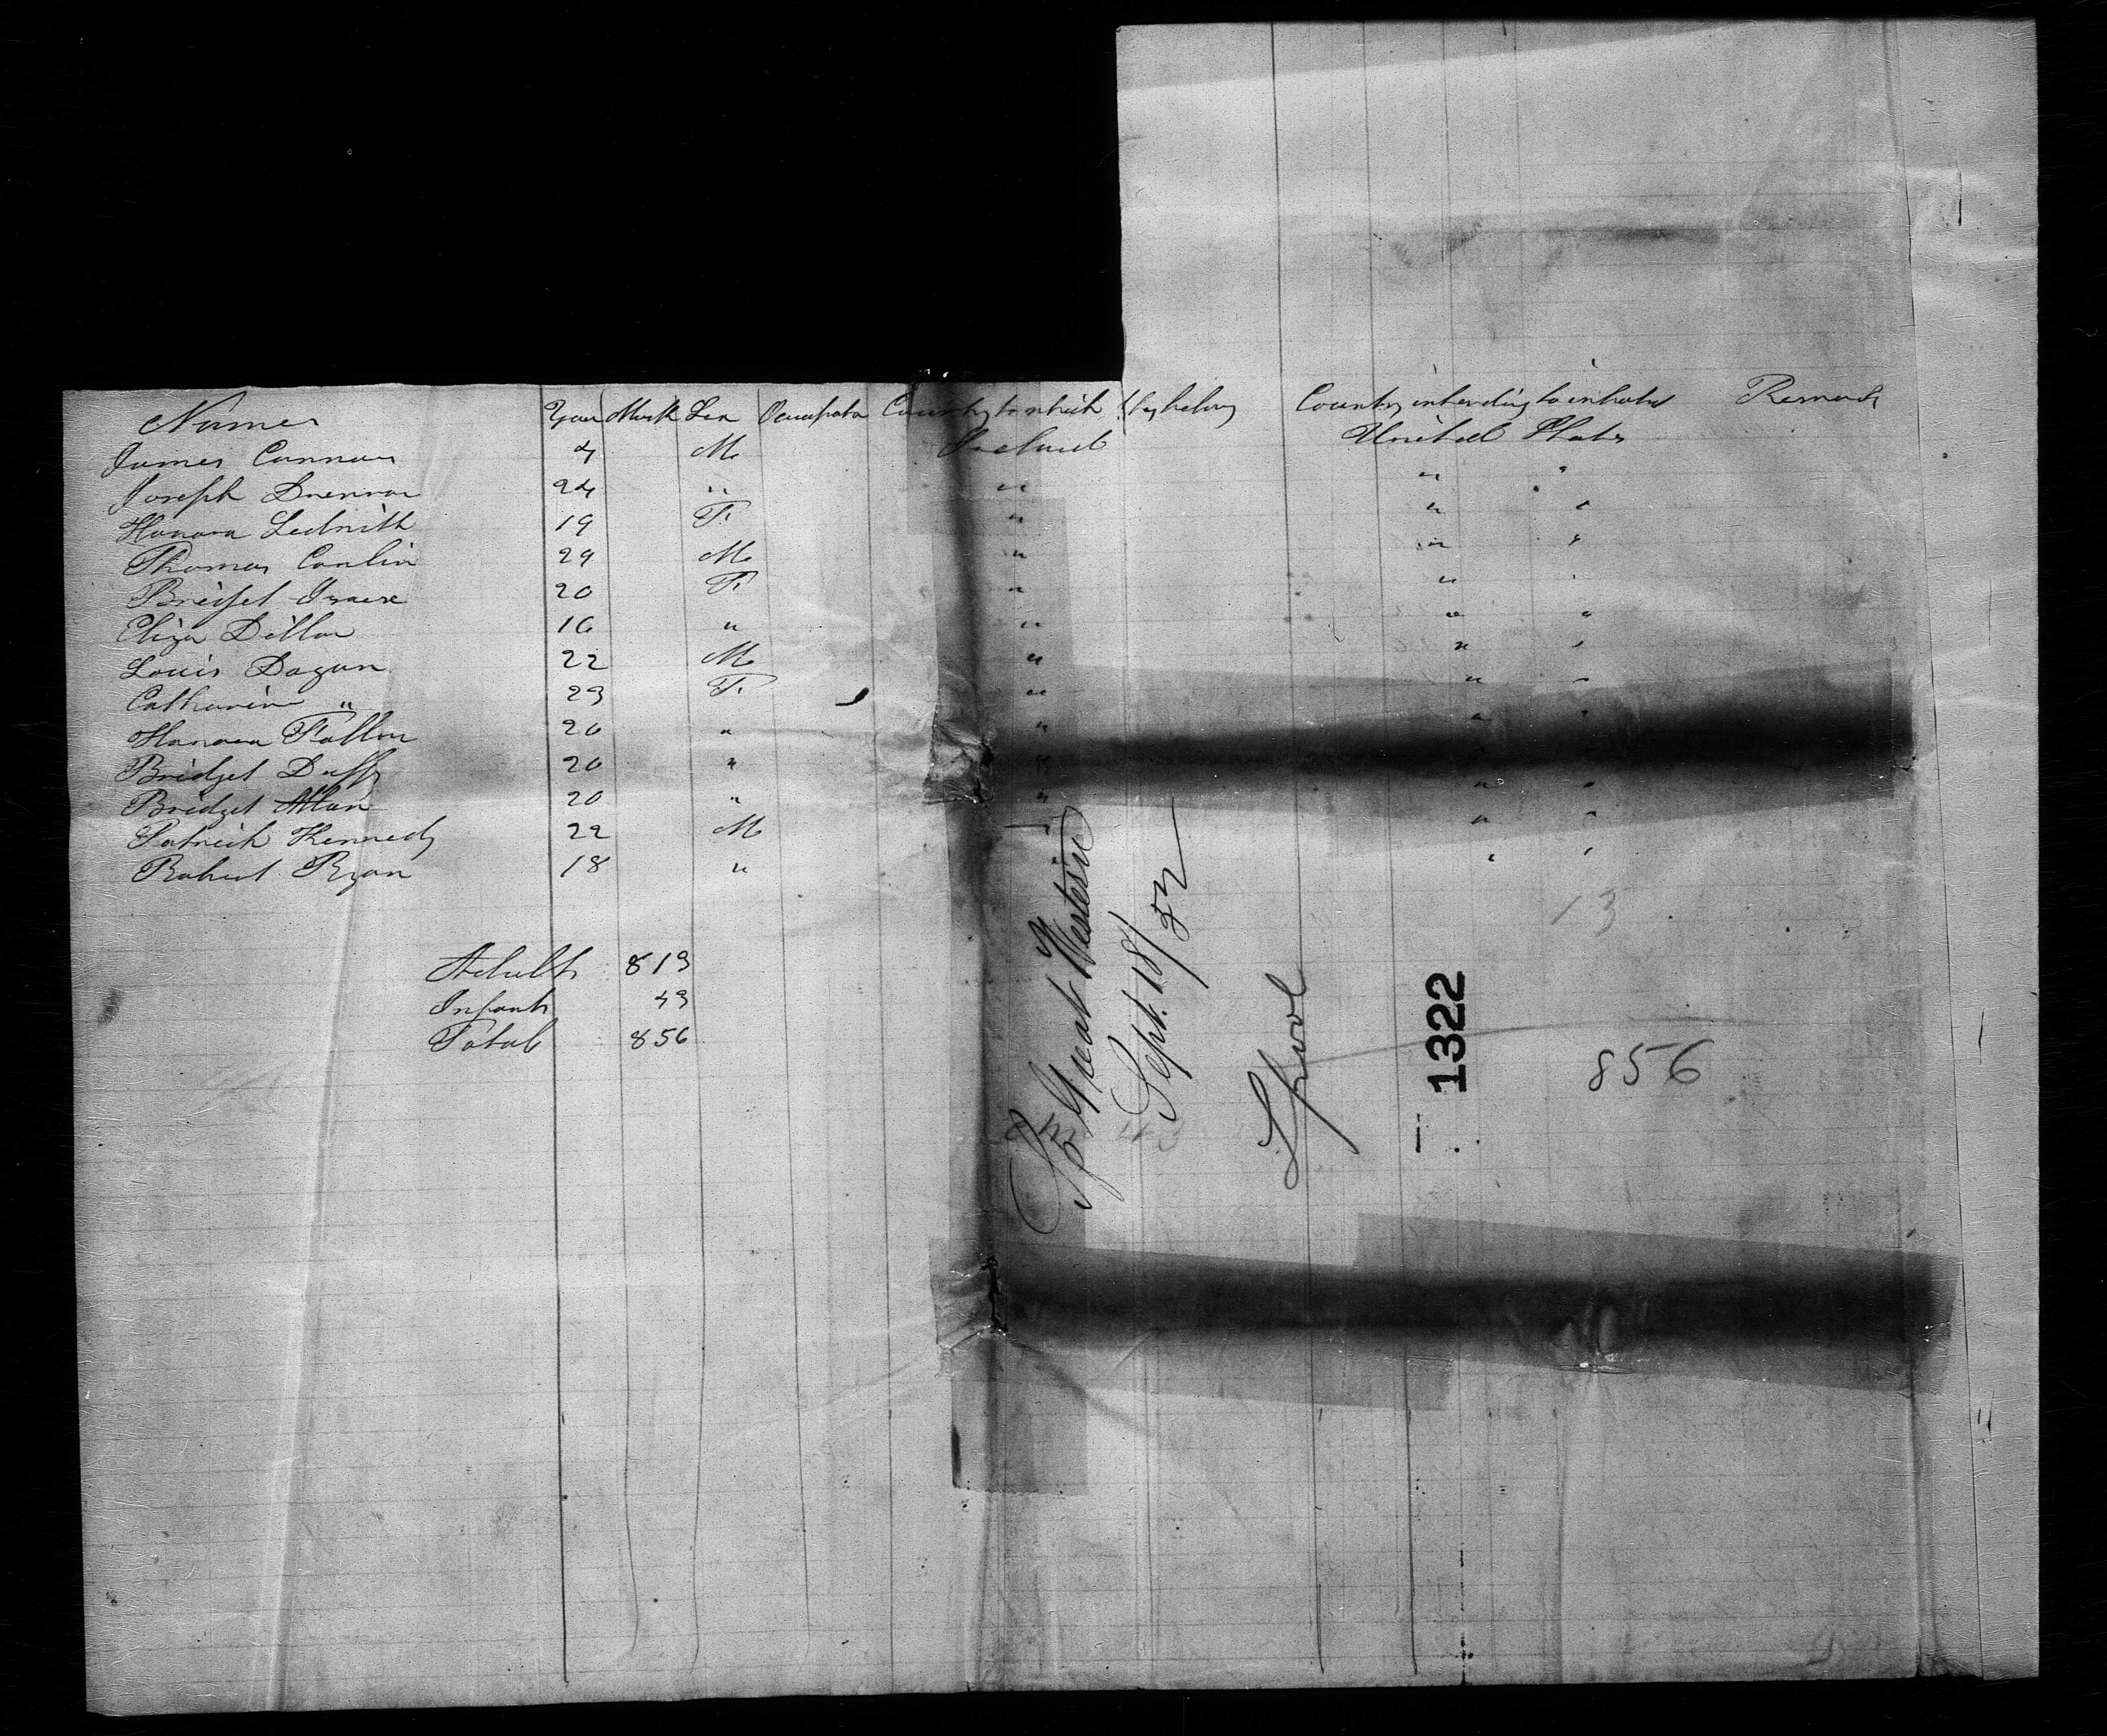 Names Years Month Sex Occupation Country to which they belong Country intending to inhabit Remarks
James Cannon 4 M Ireland United States
Joseph Drennan 24 " " " "
Hanora Ledwith 19 F " " "
Thomas Conlin 29 M " " "
Bridget 20 F " "
Eliza Dillon 16 " " " "
Louis Dagan 22 M " " "
Catharine " 23 F " " "
Hanora Fallon 20 " " " "
Bridget Duffy 20 " "
Bridget Allan 20 " " " "
Patrick Kennedy 22 M " " "
Robert Ryan 18 " " "
13
Adults 813
Infants 43
Total 856
Sp Great Western
Sept. 18/52
Lpool
1322
856
43